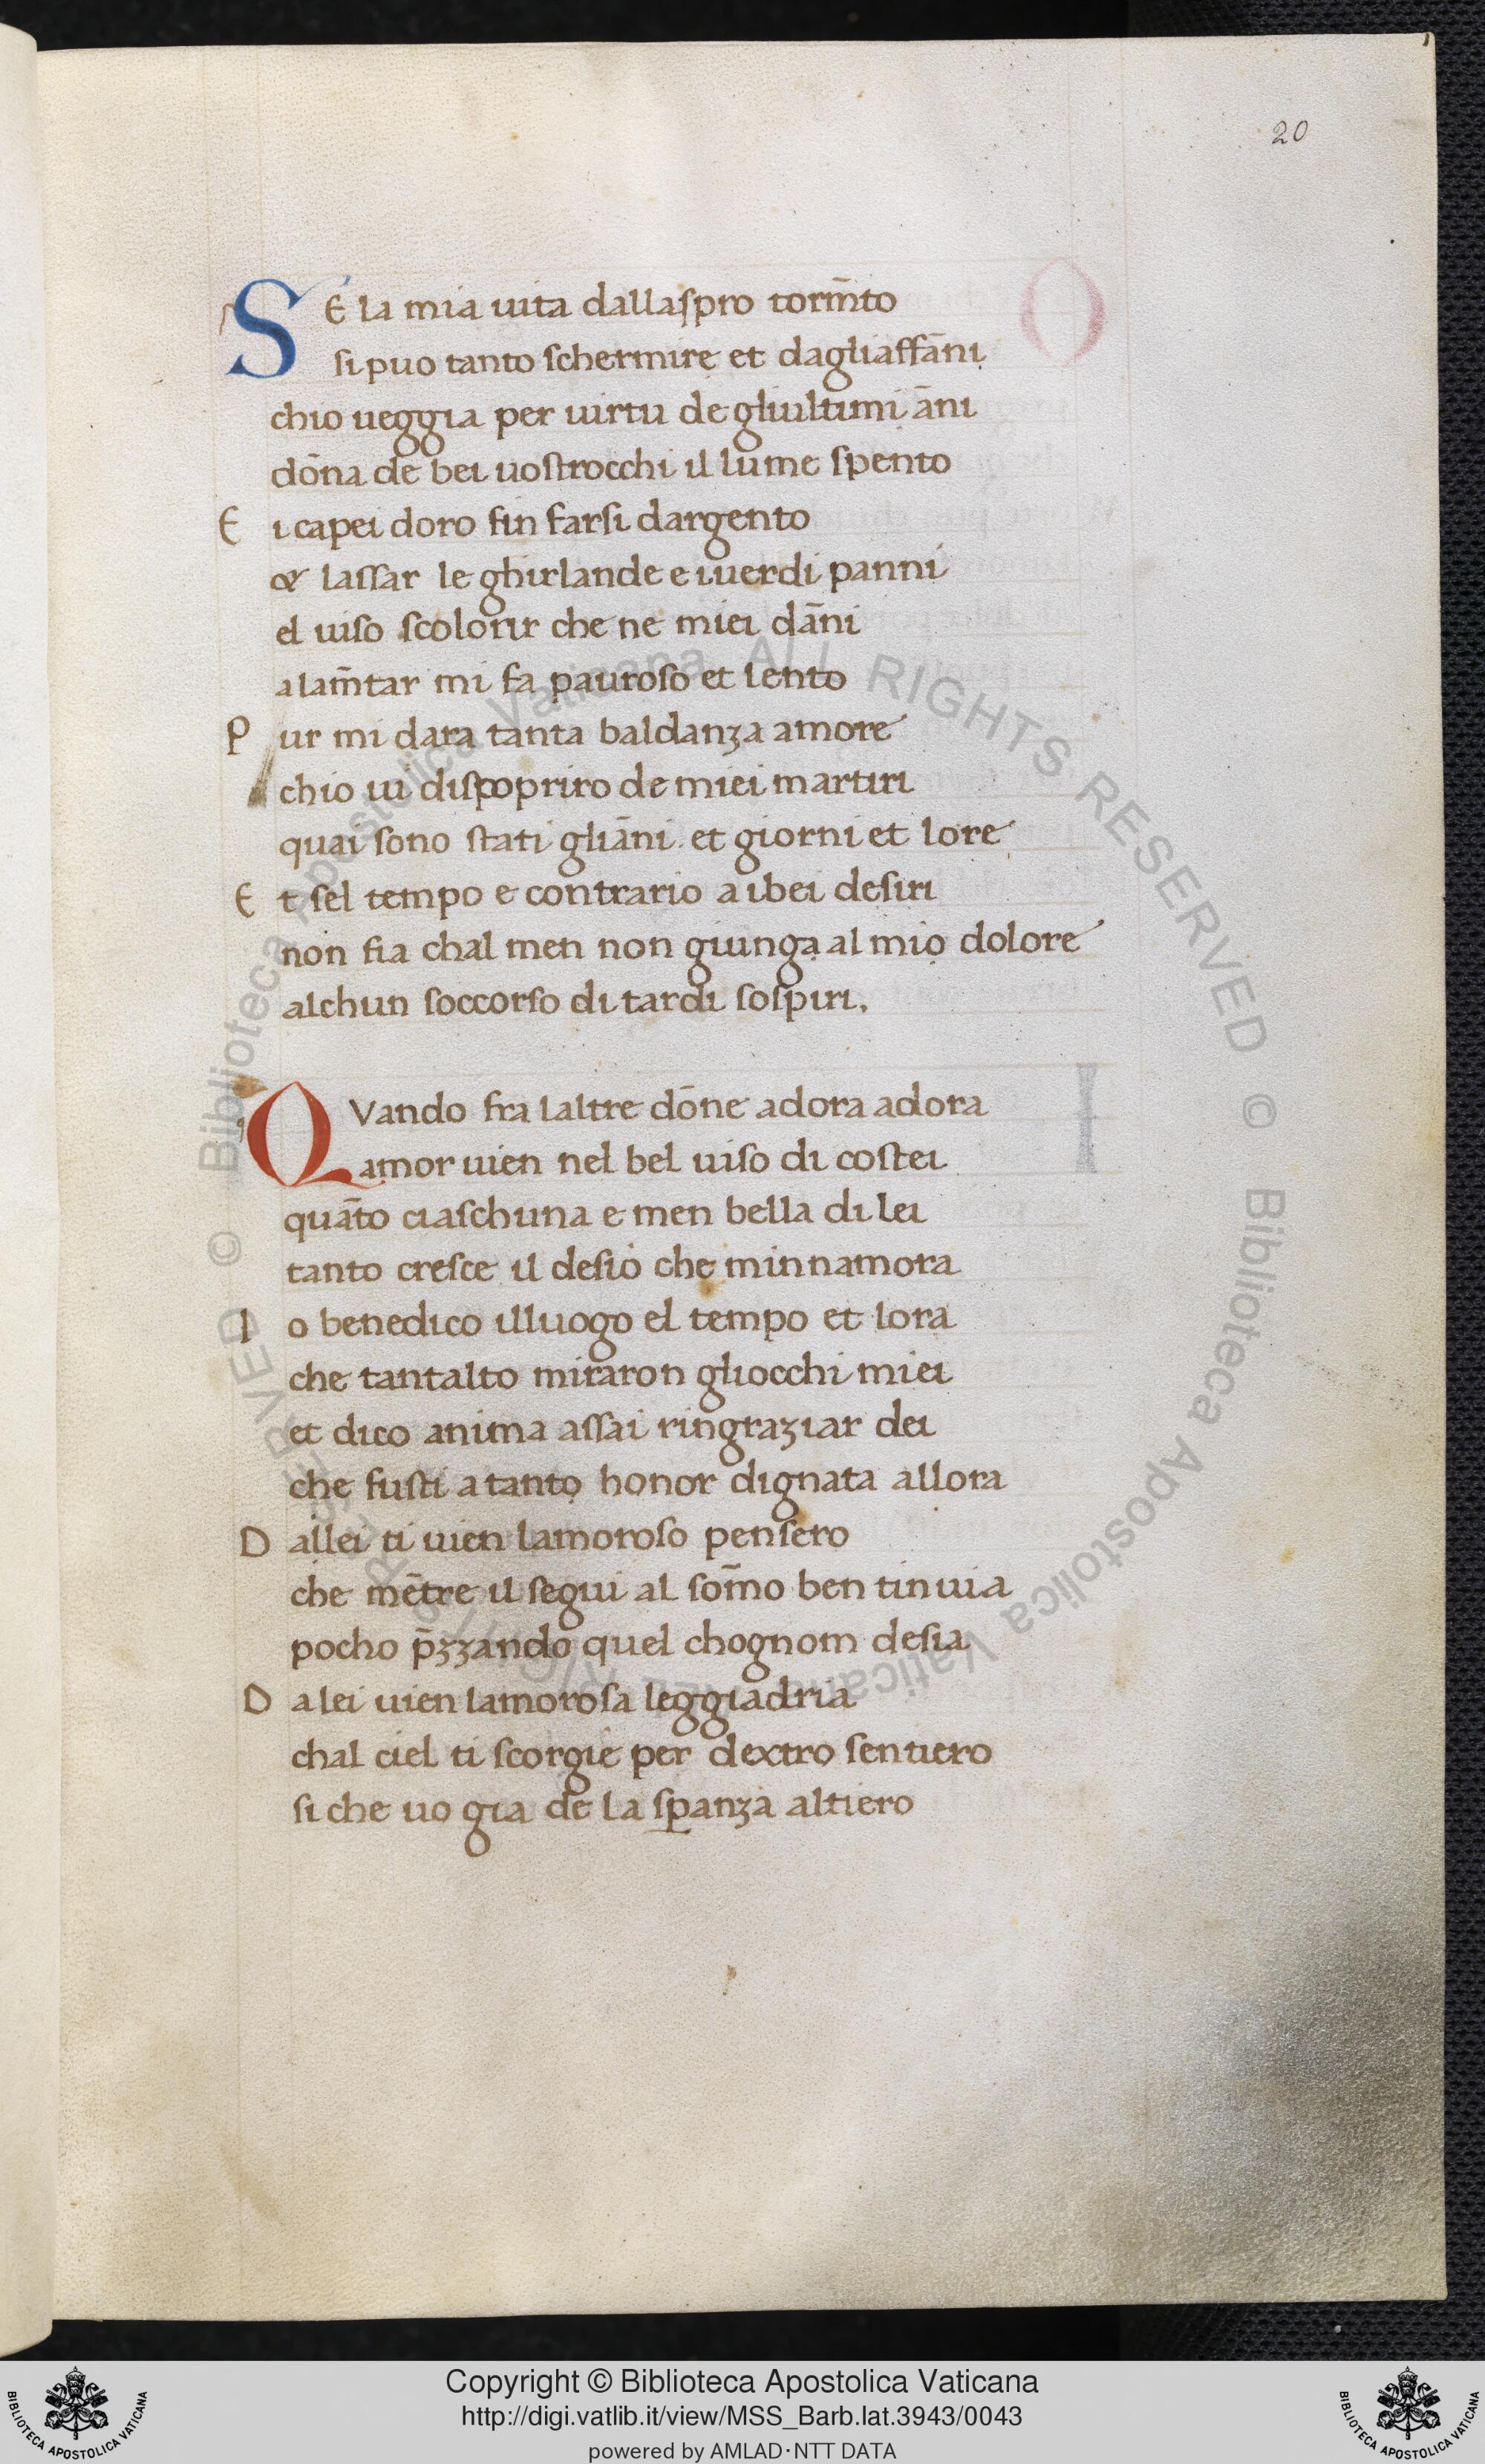 20
SE la mia uita dallaſpro torm̄to
ſi puo tanto ſchermire et dagliaffāni
chio ueggia per uirtu de gliultimi āni
dōna de bei uoſtrocchi il lume ſpento
E i capei doro fin farſi dargento
& laſſar le ghirlande e iuerdi panni
el uiſo ſcolorir che ne miei dāni
a lam̄tar mi fa pauroſo et lento
P ur mi dara tanta baldanza amore
chio ui diſpopriro de miei martiri
quai ſono ſtati gliāni et giorni et lore
E t ſel tempo e contrario a ibei deſiri
non fia chal men non giunga al mio dolore
alchun ſoccorſo di tardi ſoſpiri.
QVando fra laltre dōne adora adora
amor uien nel bel uiſo di coſtei
quāto ciaſchuna e men bella di lei
tanto creſce il deſio che minnamora
I o benedico illuogo el tempo et lora
che tantalto miraron gliocchi miei
et dico anima aſſai ringraziar dei
che fuſti a tanto honor dignata allora
D allei ti uien lamoroſo penſero
che mētre il ſegui al ſom̄o ben tinuia
pocho p̄zzando quel chognom deſia
D a lei uien lamoroſa leggiadria
chal ciel ti ſcorgie per dextro ſentiero
ſi che uo gia de la ſꝑanza altiero
© Biblioteca Apostolica Vaticana ALL RIGHTS RESERVED © Biblioteca Apostolica Vaticana ALL RIGHTS RESERVED
Copyright © Biblioteca Apostolica Vaticana
http://digi.vatlib.it/view/MSS_Barb.lat.3943/0043
powered by AMLAD·NTT DATA
BIBLIOTECA APOSTOLICA VATICANA
BIBLIOTECA APOSTOLICA VATICANA